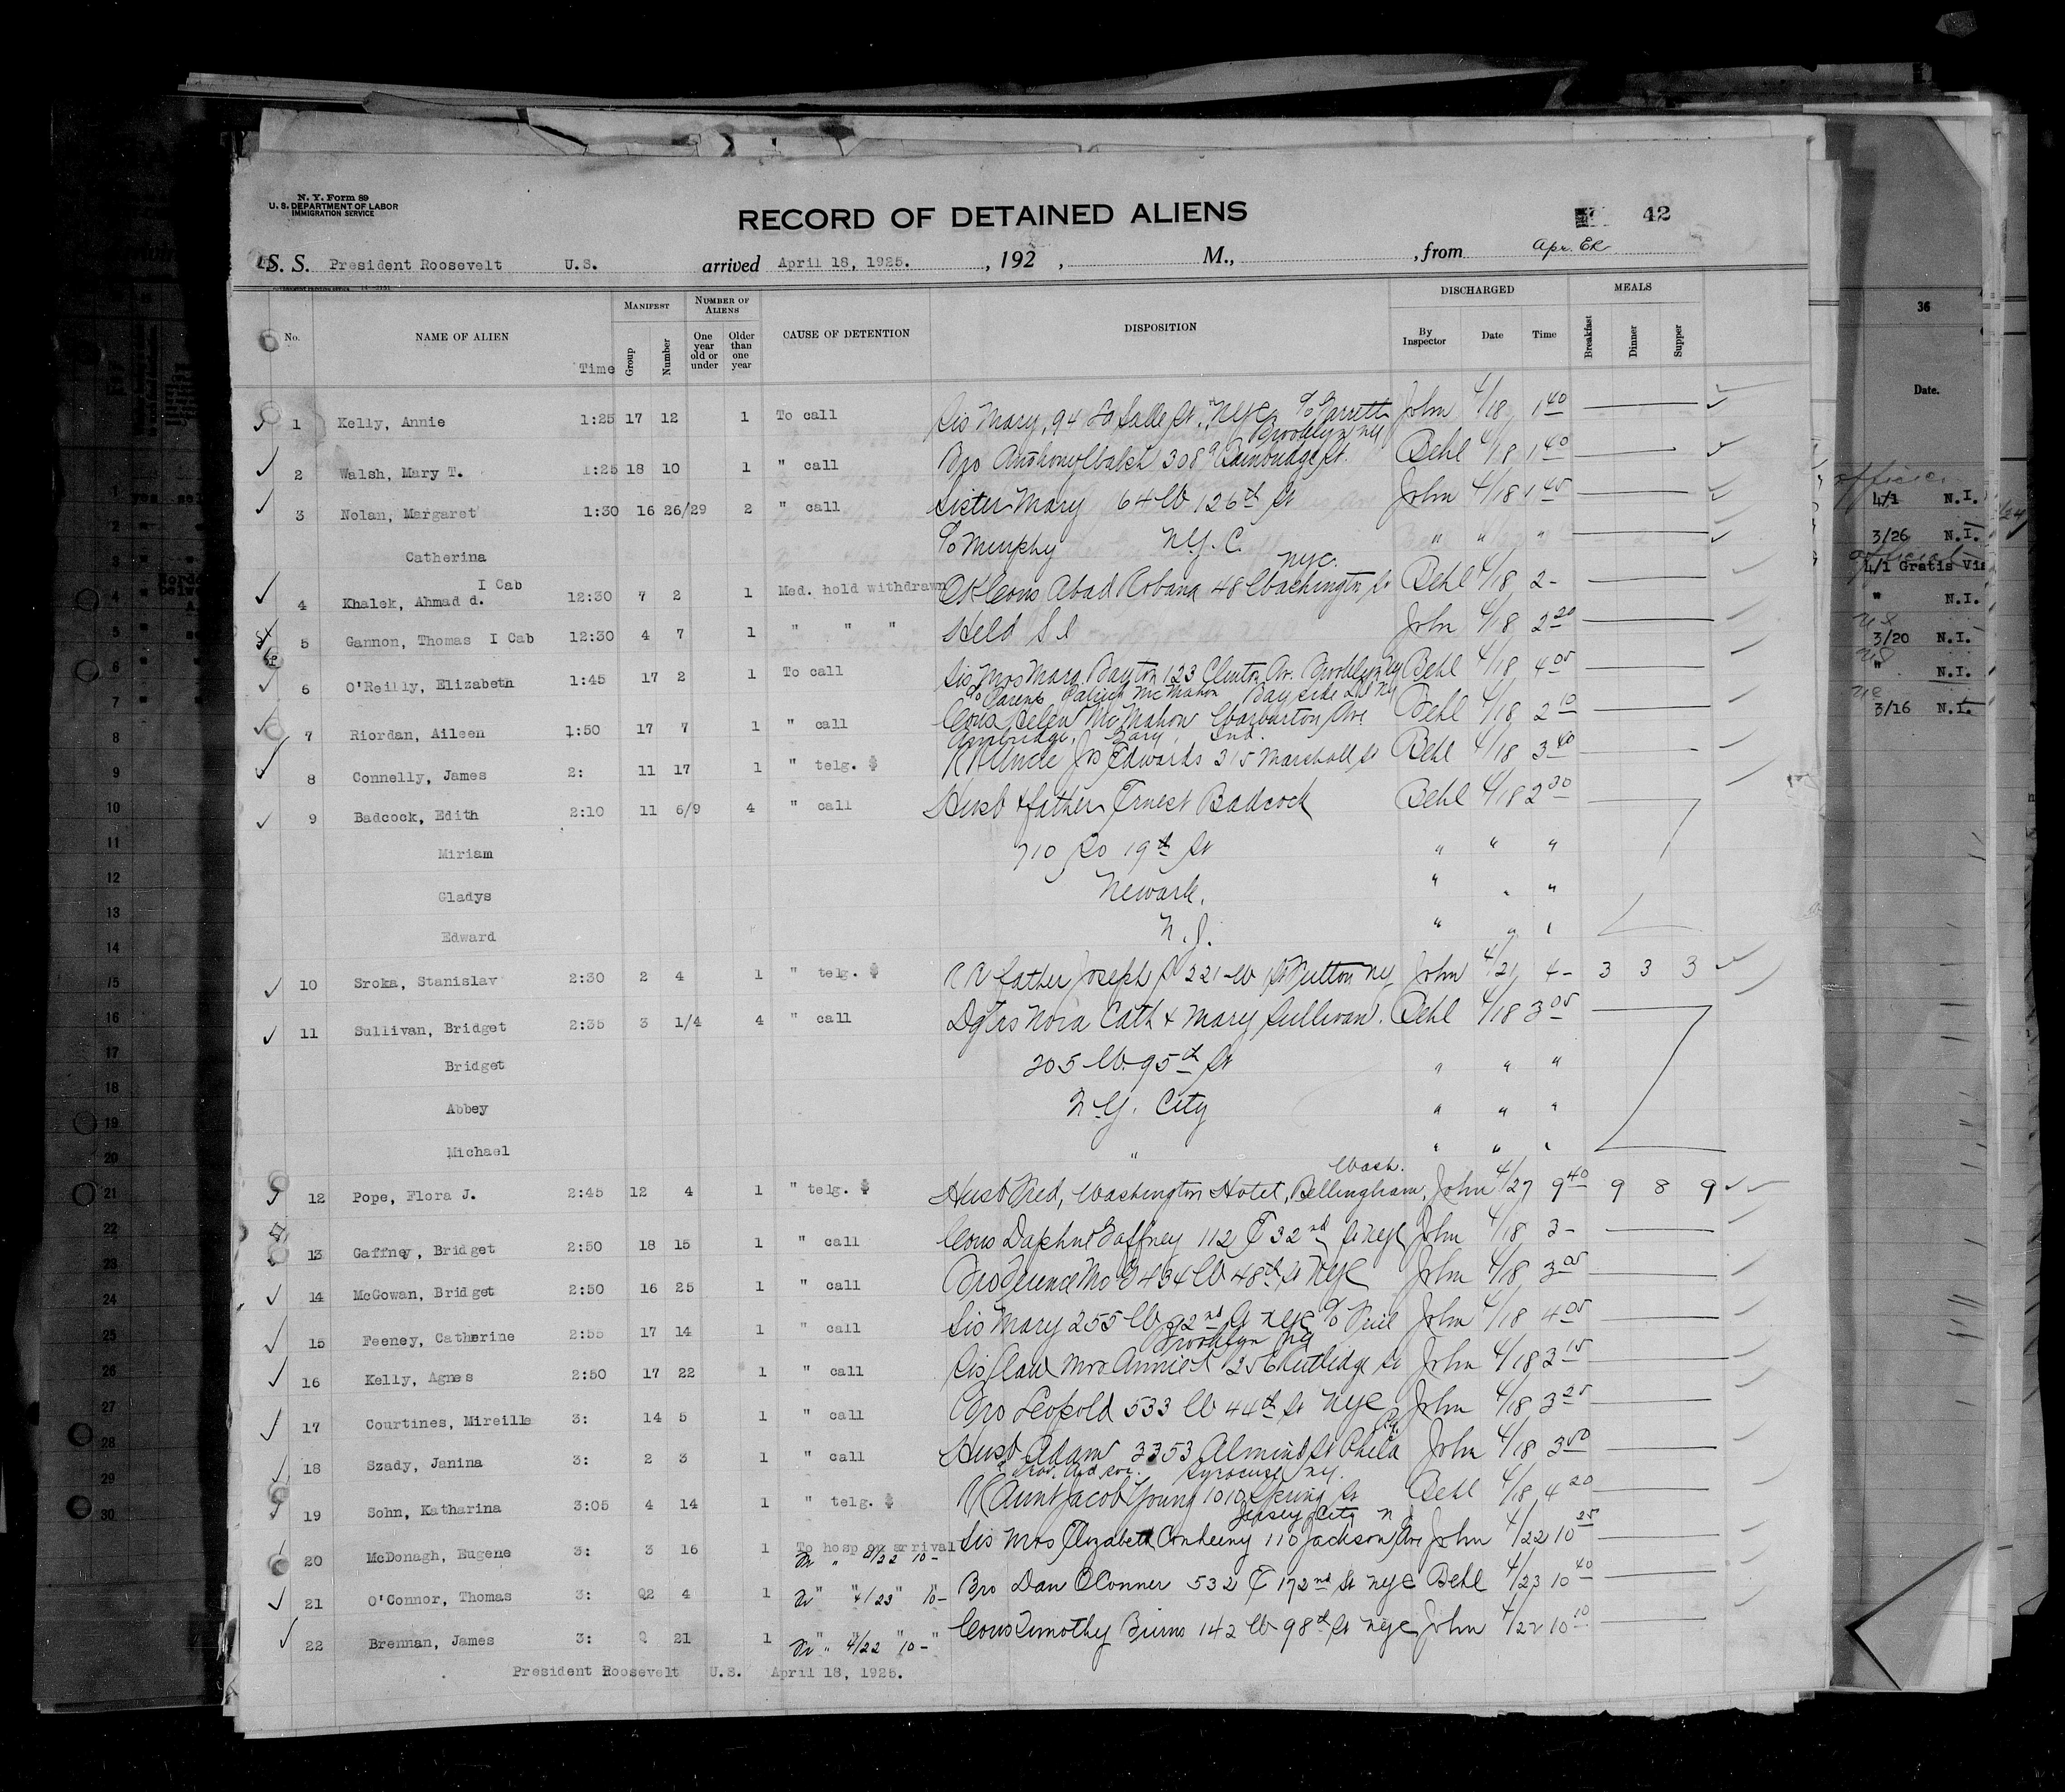 N. Y. Form 89
U. S. DEPARTMENT OF LABOR
IMMIGRATION SERVICE
RECORD OF DETAINED ALIENS
42
S. S. President Roosevelt U.S. arrived April 18, 1925. , 192 , M., , from Apr.
No. NAME OF ALIEN Time MANIFEST Group Number NUMBER OF ALIENS One year old or under Older than one year CAUSE OF DETENTION DISPOSITION DISCHARGED By Inspector Date Time MEALS Breakfast Dinner Supper
1 Kelly, Annie 1:25 17 12 1 To call Sis Mary, 94 La Salle St., NYC % Garrett John 4/18 1 40
Brooklyn NY
2 Walsh, Mary T. 1:25 18 10 1 " call Bro Anthony Walsh 308 Bainbridge St. Behl 4/18 1 40
3 Nolan, Margaret 1:30 16 26/29 2 " call Sister Mary 64 W 126th St John 4/18 1 45
Catherina % Murphy N.Y. C. " " "
NYC.
4 Khalek, Ahmad d. I Cab 12:30 7 2 1 Med. hold withdrawn Cous Abad Robana 48 Washington St Behl 4/18 2-
5 Gannon, Thomas I Cab 12:30 4 7 1 " " " Held S I John 4/18 2 20
6 O'Reilly, Elizabeth 1:45 17 2 1 To call Sis Mrs Mara Bayton 123 Clinton Av. Brooklyn NY Behl 4/18 4 05
% Patrick McMahon Bayside L I NY
7 Riordan, Aileen 1:50 17 7 1 " call Cous Helen McMahon Warburton Ave Behl 4/18 2 10
Gary, Ind.
8 Connelly, James 2: 11 17 1 " telg. RR Uncle Jno Edwards 315 Marshall St Behl 4/18 3 40
9 Badcock, Edith 2:10 11 6/9 4 " call Husb & father Ernest Badcock Behl 4/18 2 30
Miriam 710 So 19th St " " "
Gladys Newark, " " "
Edward N.J. " " "
10 Sroka, Stanislav 2:30 2 4 1 " telg. RR father Joseph S 221 W St Fulton NY John 4/21 4- 3 3 3
11 Sullivan, Bridget 2:35 3 1/4 4 " call Dgtrs Nora Cath & Mary Sullivan. Behl 4/18 3 05
Bridget 205 W. 95th St " " "
Abbey N.Y. City " " "
Michael " " " "
Wash.
12 Pope, Flora J. 2:45 12 4 1 " telg. Husb Fred, Washington Hotel, Bellingham, John 4/27 9 40 9 8 9
13 Gaffney, Bridget 2:50 18 15 1 " call Cous Daphne Gaffney 112 E 32nd St NYC John 4/18 3-
14 McGowan, Bridget 2:50 16 25 1 " call Bro Terence McG 434 W 48th St NYC John 4/18 3 05
15 Feeney, Catherine 2:55 17 14 1 " call Sis Mary 255 W 92nd St NYC % John 4/18 4 05
Brooklyn NY
16 Kelly, Agnes 2:50 17 22 1 " call Sis law Mrs Annie K 256 Rutledge St John 4/18 3 15
17 Courtines, Mireille 3: 14 5 1 " call Bro Leopold 533 W 44th St NYC John 4/18 3 25
Pa.
18 Szady, Janina 3: 2 3 1 " call Husb Adam 3353 Almind St Phila John 4/18 3 50
Trav. Aid Soc. Syracuse NY.
19 Sohn, Katharina 3:05 4 14 1 " telg. RR Aunt Jacob Young 1010 Spring St Behl 4/18 4 20
Jersey City N J
20 McDonagh, Eugene 3: 3 16 1 To hosp on arrival Sis Mrs Elizabeth Conheeny 110 Jackson Ave John 4/22 10 25
4/22 10-
21 O'Connor, Thomas 3: Q2 4 1 " " 4/23 " 10- Bro Dan OConner 532 E 172nd St NYC Behl 4/23 10 40
22 Brennan, James 3: Q 21 1 " " 4/22 " 10- Cous Timothy Burns 142 W 98th St NYC John 4/22 10 10
President Roosevelt U.S. April 18, 1925.
36
Date.
4/1 N.I.
3/26 N.I.
4/1 Gratis Vis
" N.I.
3/20 N.I.
" N.I.
3/16 N.I.